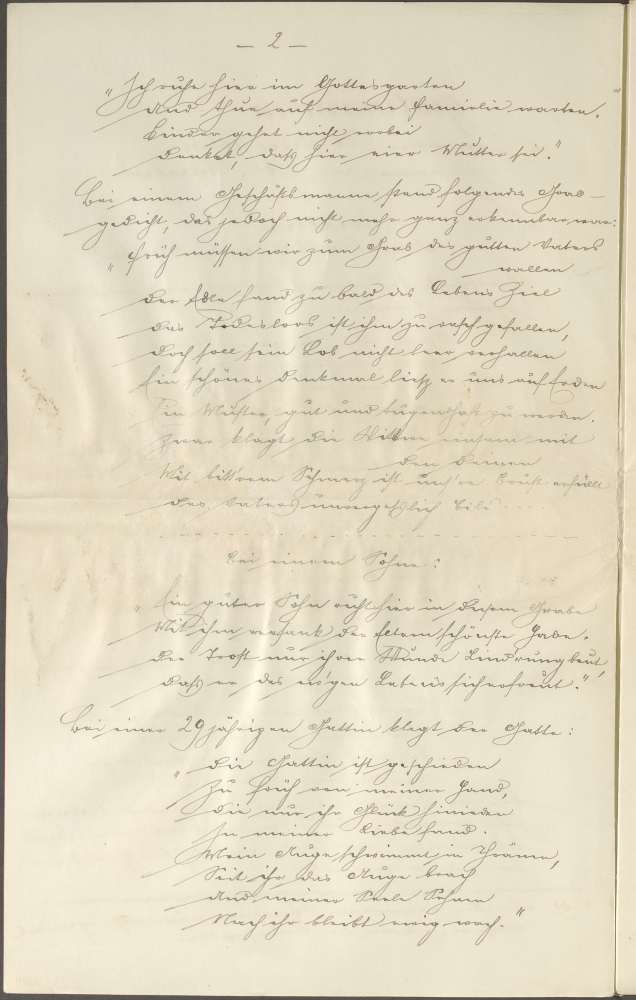 — 2 —
„Ich ruhe hier im Gottesgarten
Und thue auf meine Familie warten.
Kinder gehet nicht vorbei
Denket, daß hier eier Mutter sei."
Bei einem Geschäftsmanne stand folgendes Grab-
gedicht, das jedoch nicht mehr ganz erkennbar war:
„Früh müssen wir zum Grab des gutten Vaters
wallen
Der Edle fand zu bald des Lebens Ziel
Das Todesloos ist ihm zu rasch gefallen,
Doch soll sein Lob nicht leer verhallen
Ein schönes Denkmal ließ er uns auf Erden
Ein Muster, gut und tugendhaft zu werden.
Zwar klagt die Wittwe einsam mit
den Keinen
Mit bitt'rem Schmerz ist uns're Brust erfüllt
Des Vaters unvergeßlich Bild ....
Bei einem Sohne:
„Ein guter Sohn ruht hier in diesem Grabe
Mit ihm versank der Eltern schönste Habe.
Der Trost nur ihrer Wunde Lind'rung beut,
Daß er des ew'gen Lebens sich erfreut."
Bei einer 29 jährigen Gattin klagt der Gatte:
„Die Gattin ist geschieden
Zu früh von meiner Hand,
Die nur ihr Glück hinieden
In meiner Liebe fand.
Mein Auge schwimmt in Thränen,
Seit ihr das Auge brach
Und meiner Seele Sehnen
Nach ihr bleibt ewig wach."